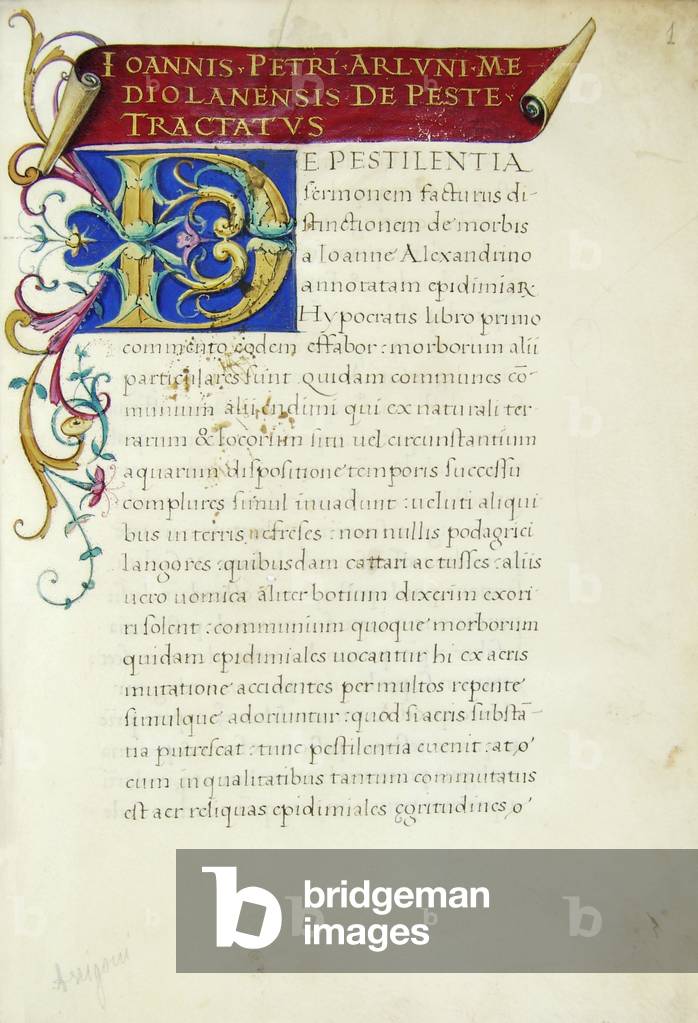 1
IOANNIS · PETRI · ARLVNI · ME
DIOLANENSIS · DE PESTE ·
TRACTATVS
DE PESTILENTIA
sermonem facturus di-
stinctionem de morbis
a Ioanne Alexandrino
annotatam epidimiaꝝ
Hypocratis libro primo
commento eodem effabor : morborum alii
particulares sunt Quidam communes cō-
munium alii endimi qui ex naturali ter-
rarum & locorum situ uel circunstantium
aquarum dispositione temporis successu
complures simul inuadunt : ueluti aliqui
bus in terris nefreses : non nullis podagrici
langores : quibusdam cattari ac tusses : aliis
uero uomica āliter botium dixerim exori-
ri solent : communium quoque morborum
quidam epidimiales uocantur hi ex aeris
mutatione accidentes per multos repente
simulque adoriuntur : quod si aeris substā-
tia putrescat : tunc pestilentia euenit : at
cum in qualitatibus tantum commutatus
est aer reliquas epidimiales ęgritudines
b bridgeman
images